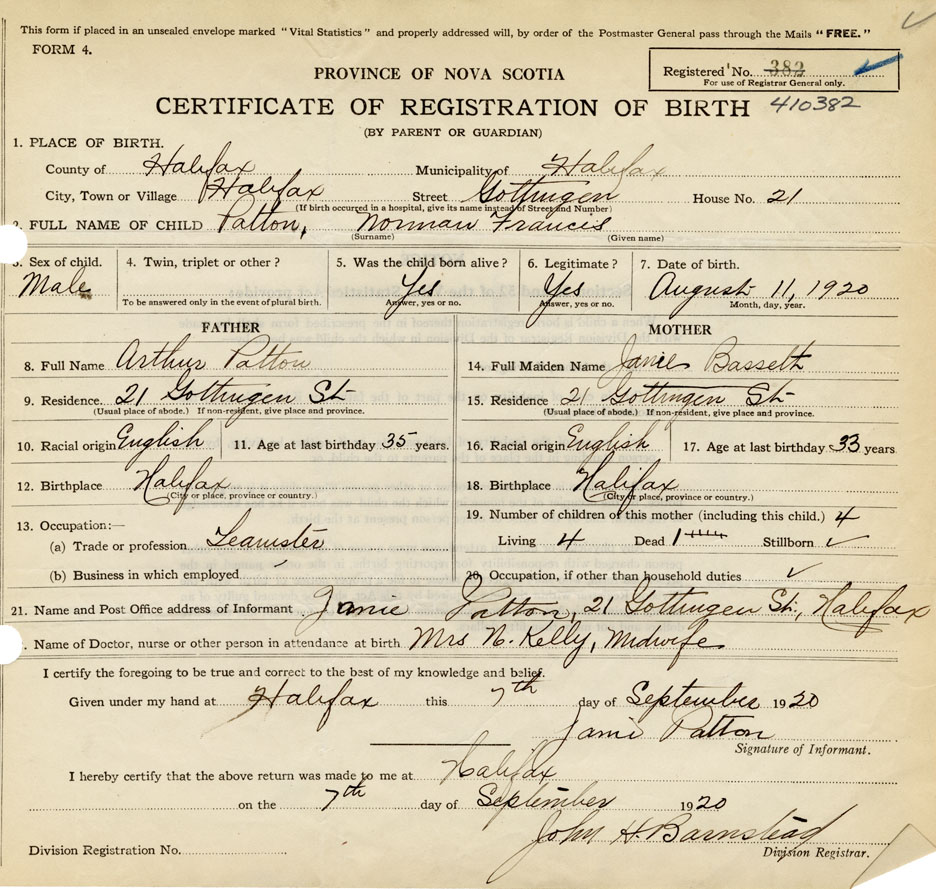 This form if placed in an unsealed envelope marked "Vital Statistics" and properly addressed will, by order of the Postmaster General pass through the Mails "FREE."
FORM 4.
Registered No. 382
For use of Registrar General only.
PROVINCE OF NOVA SCOTIA
CERTIFICATE OF REGISTRATION OF BIRTH 410382
(BY PARENT OR GUARDIAN)
1. PLACE OF BIRTH.
County of Halifax Municipality of Halifax
City, Town or Village Halifax Street Gottingen House No. 21
(If birth occurred in a hospital, give its name instead of Street and Number)
2. FULL NAME OF CHILD Patton, Norman Francis
(Surname) (Given name)
3. Sex of child. 4. Twin, triplet or other? 5. Was the child born alive? 6. Legitimate? 7. Date of birth.
Male Yes Yes August 11, 1920
To be answered only in the event of plural birth. Answer, yes or no. Answer, yes or no. Month, day, year.
FATHER MOTHER
8. Full Name Arthur Patton 14. Full Maiden Name Janie Bassett
9. Residence. 21 Gottingen St. 15. Residence 21 Gottingen St.
(Usual place of abode.) If non-resident, give place and province. (Usual place of abode.) If non-resident, give place and province.
10. Racial origin English 11. Age at last birthday 35 years. 16. Racial origin English 17. Age at last birthday 33 years
12. Birthplace Halifax 18. Birthplace Halifax
(City or place, province or country.) (City or place, province or country.)
13. Occupation:— 19. Number of children of this mother (including this child.) 4
(a) Trade or profession Teamster Living 4 Dead 1 Stillborn ✓
(b) Business in which employed ✓ 20. Occupation, if other than household duties ✓
21. Name and Post Office address of Informant Janie Patton, 21 Gottingen St., Halifax
. Name of Doctor, nurse or other person in attendance at birth Mrs N. Kelly, Midwife
I certify the foregoing to be true and correct to the best of my knowledge and belief.
Given under my hand at Halifax this 7th day of September 1920
Janie Patton
Signature of Informant.
I hereby certify that the above return was made to me at Halifax
on the 7th day of September 1920
John H Barnstead
Division Registration No. Division Registrar.